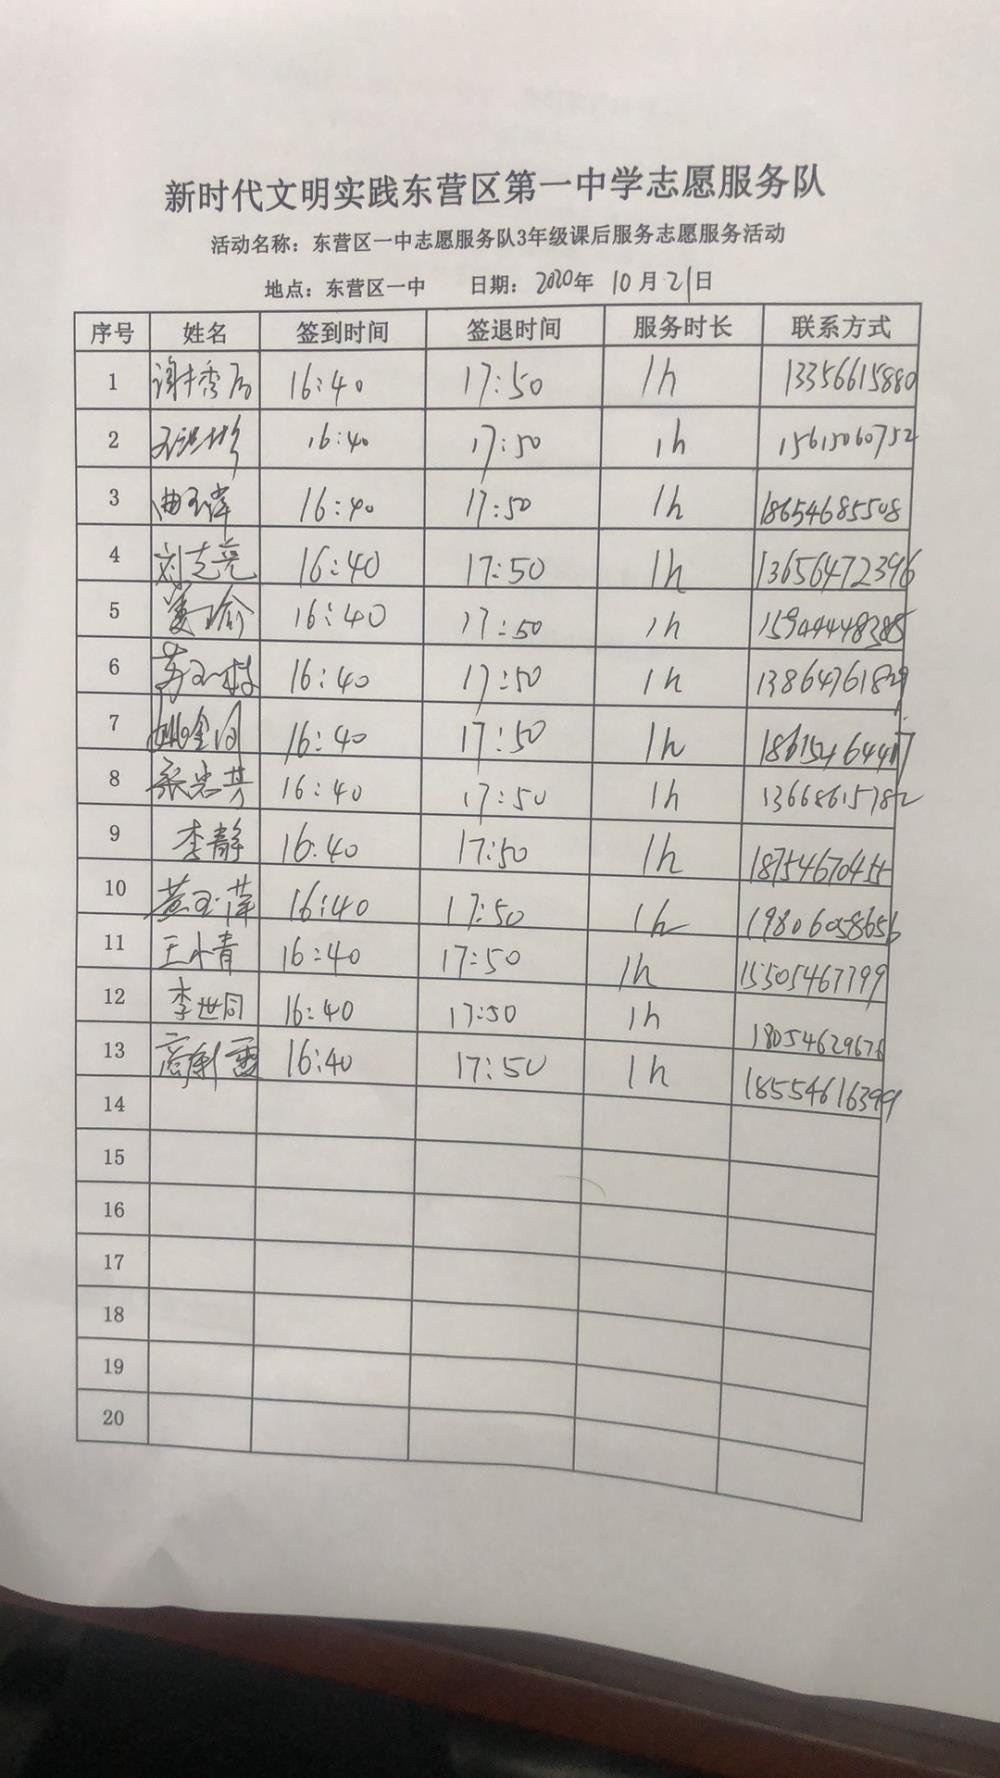 新时代文明实践东营区第一中学志愿服务队
活动名称：东营区一中志愿服务队3年级课后服务志愿服务活动
地点：东营区一中 日期：2020年 10月21日
序号 姓名 签到时间 签退时间 服务时长 联系方式
1 16:40 17:50 1h 13356615880
2 16:40 17:50 1h 15615060752
3 曲玉萍 16:40 17:50 1h 18654685508
4 刘志亮 16:40 17:50 1h 13656472396
5 姜瑜 16:40 17:50 1h
6 16:40 17:50 1h
7 姚金河 16:40 17:50 1h
8 16:40 17:50 1h 13668615782
9 李静 16:40 17:50 1h 18754670455
10 黄玉萍 16:40 17:50 1h 19806058656
11 王小青 16:40 17:50 1h 15505467799
12 李世同 16:40 17:50 1h 18054629676
13 16:40 17:50 1h 18554616399
14
15
16
17
18
19
20